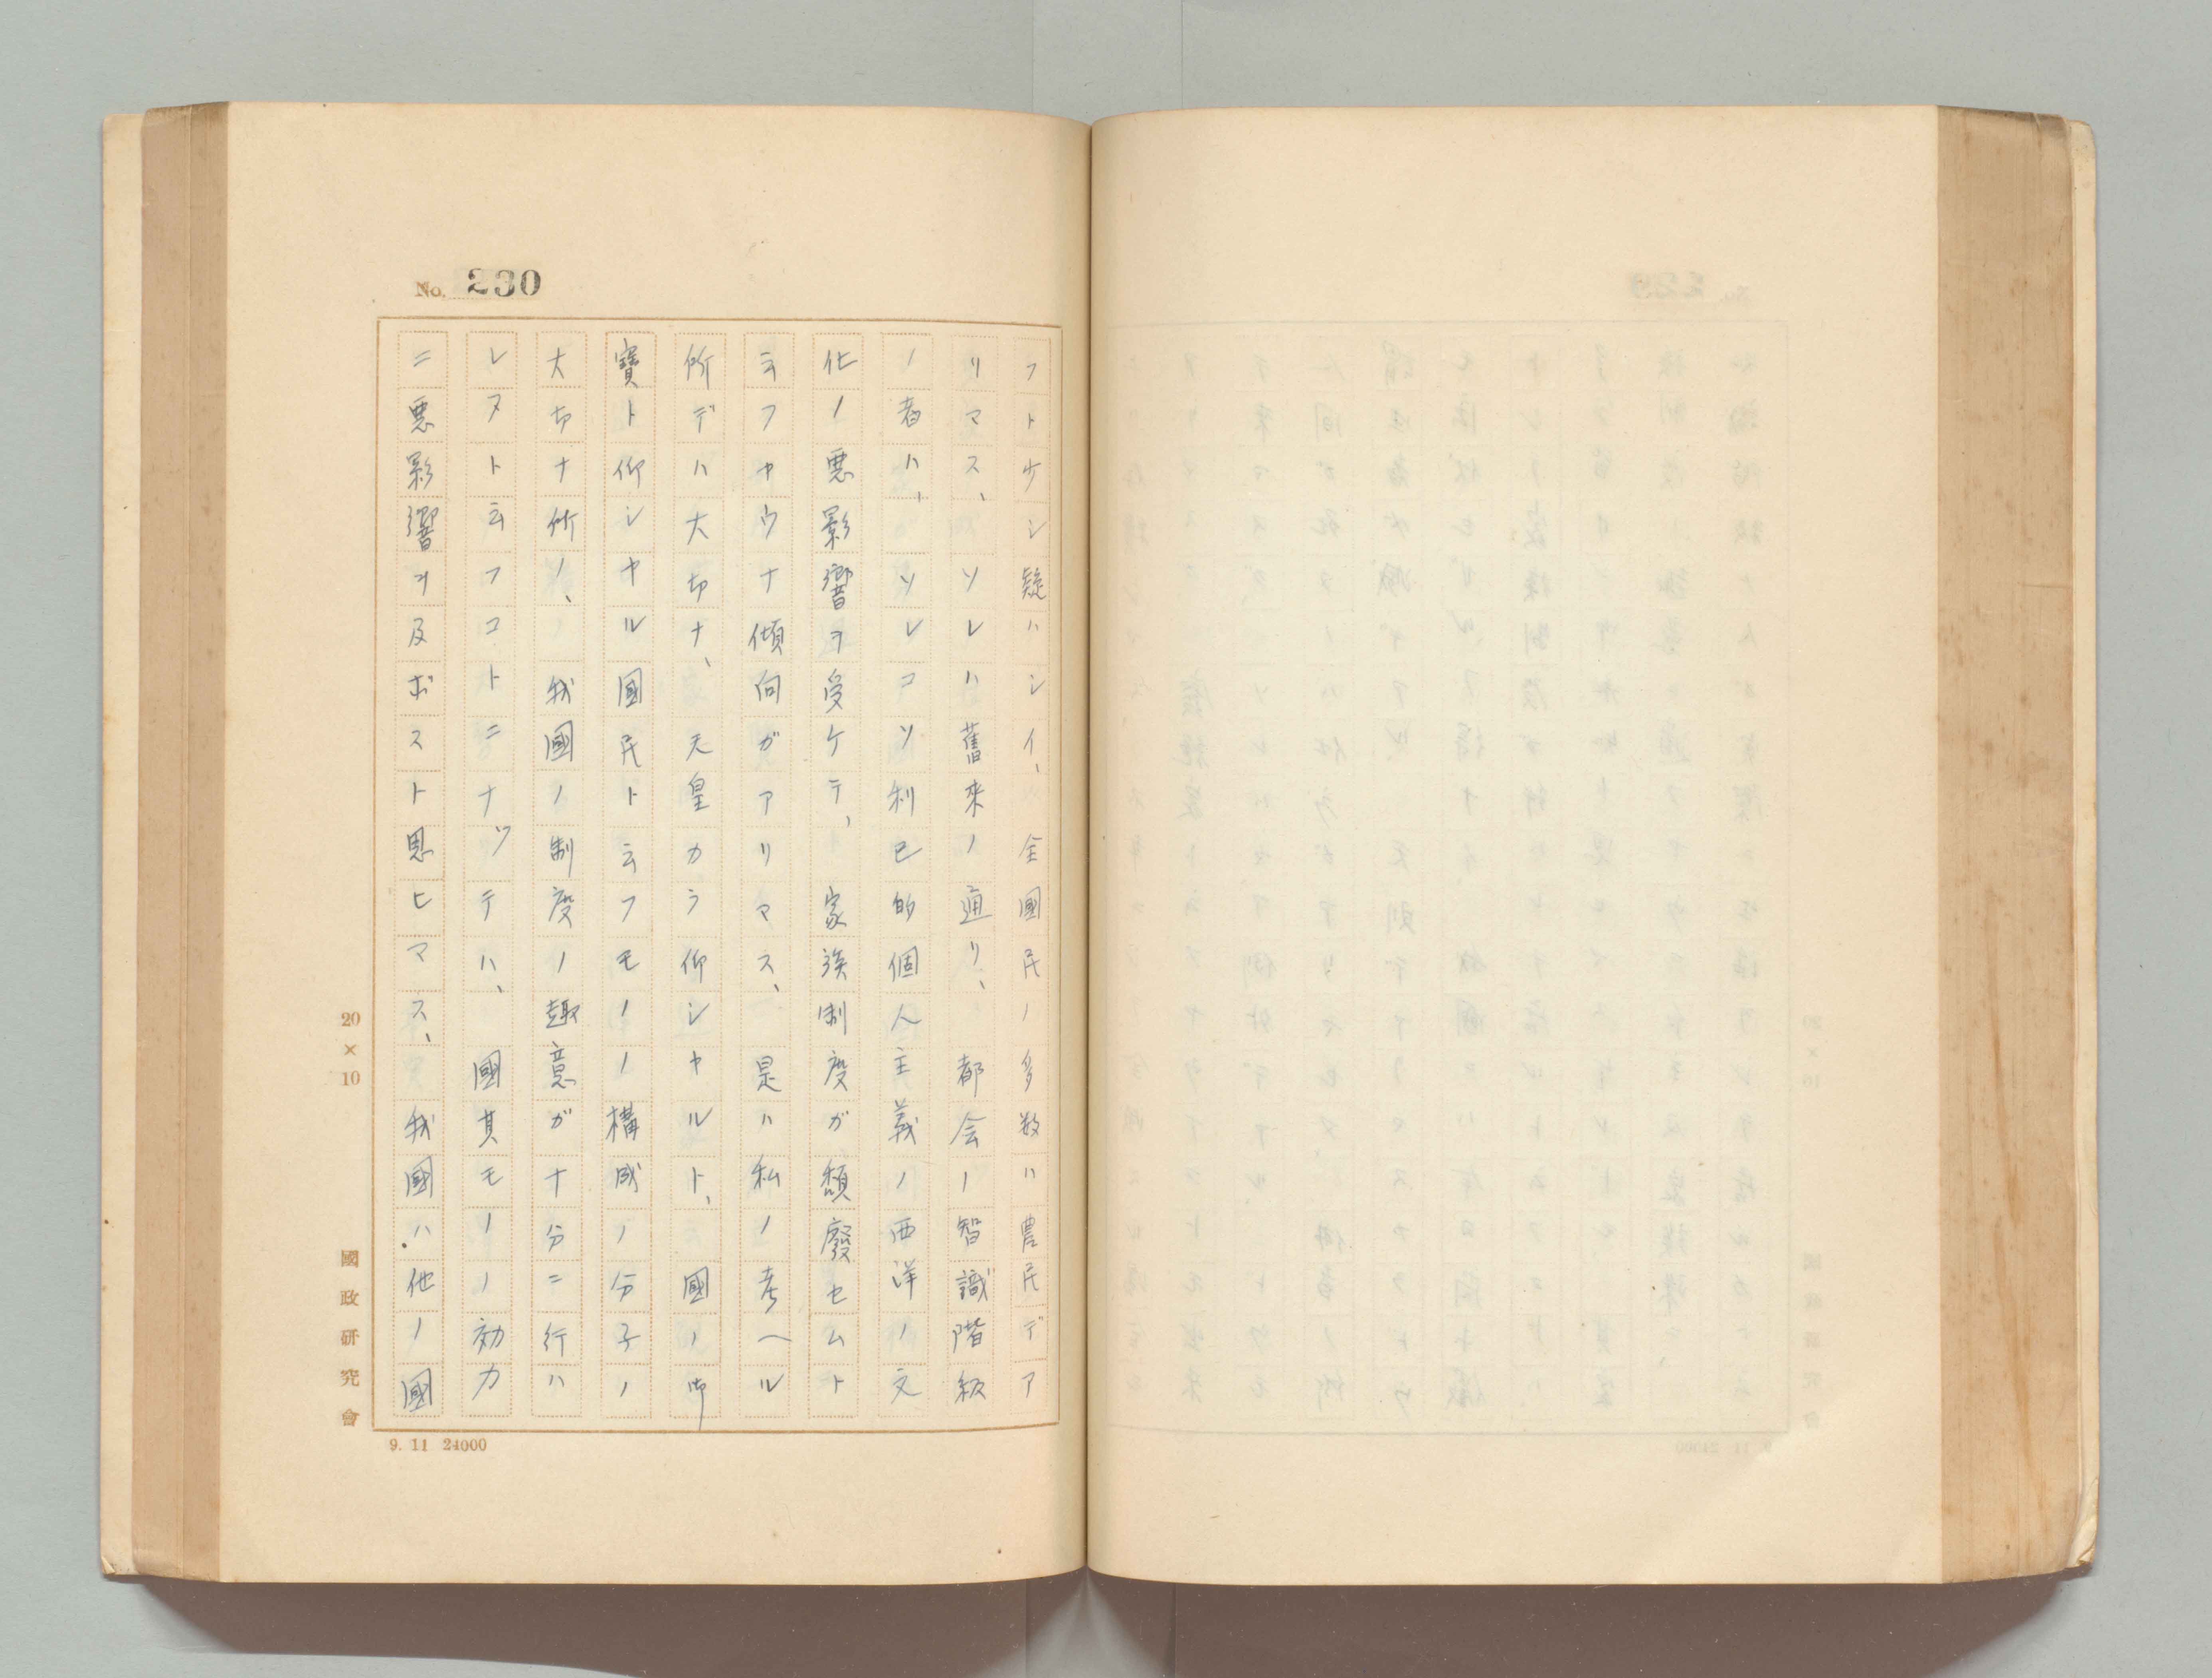 No. 230
フト少シ疑ハシイ、全國民ノ多数ハ農民デア
リマス、ソレハ舊來ノ通リ、都会ノ智識階級
ノ者ハ、ソレコソ利己的個人主義ノ西洋ノ文
化ノ悪影響ヲ受ケテ、家族制度ガ頽廢セムト
云フヤウナ傾向ガアリマス、是ハ私ノ考ヘル
所デハ大切ナ、天皇カラ仰シヤルト、國ノ御
寶ト仰シヤル國民ト云フモノノ構成ノ分子ノ
大切ナ所ノ、我國ノ制度ノ趣意ガ十分ニ行ハ
レヌト云フコトニナツテハ、國其モノノ効力
ニ悪影響ヲ及ボスト思ヒマス、我國ハ他ノ國
20×10
國政研究會
9. 11 24000